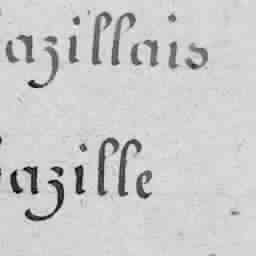 azillais
azille